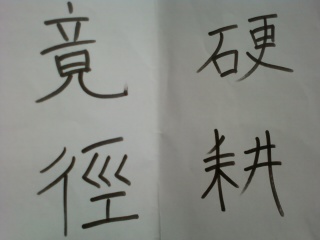 竟 硬
徑 耕